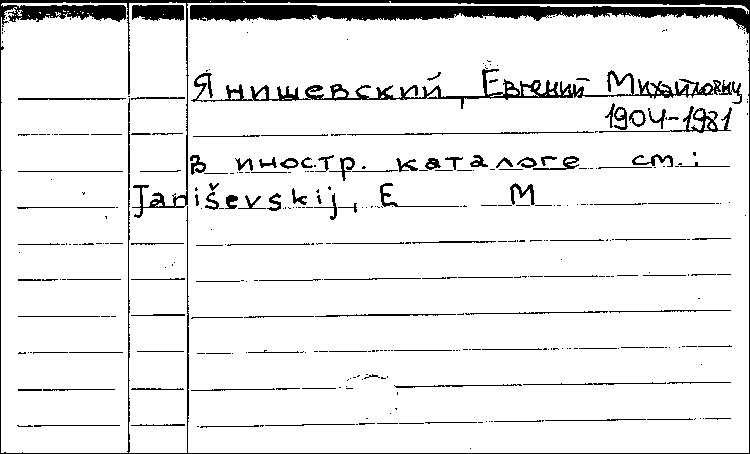 Янишевский, Евгений Михайлович
1904-1981
в иностр. каталоге см.:
Janiševskij, E M